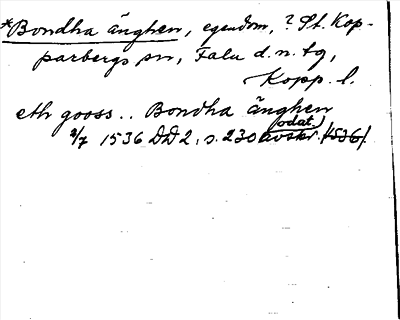 *Bondha änghen, egendom, ? St. Kop-
parbergs sn, Falu d. n. tg,
Kopp. l.
eth gooss .. Bondha änghen
2/7 1536 DD 2, s. 230 avskr. (odat.) (1536).